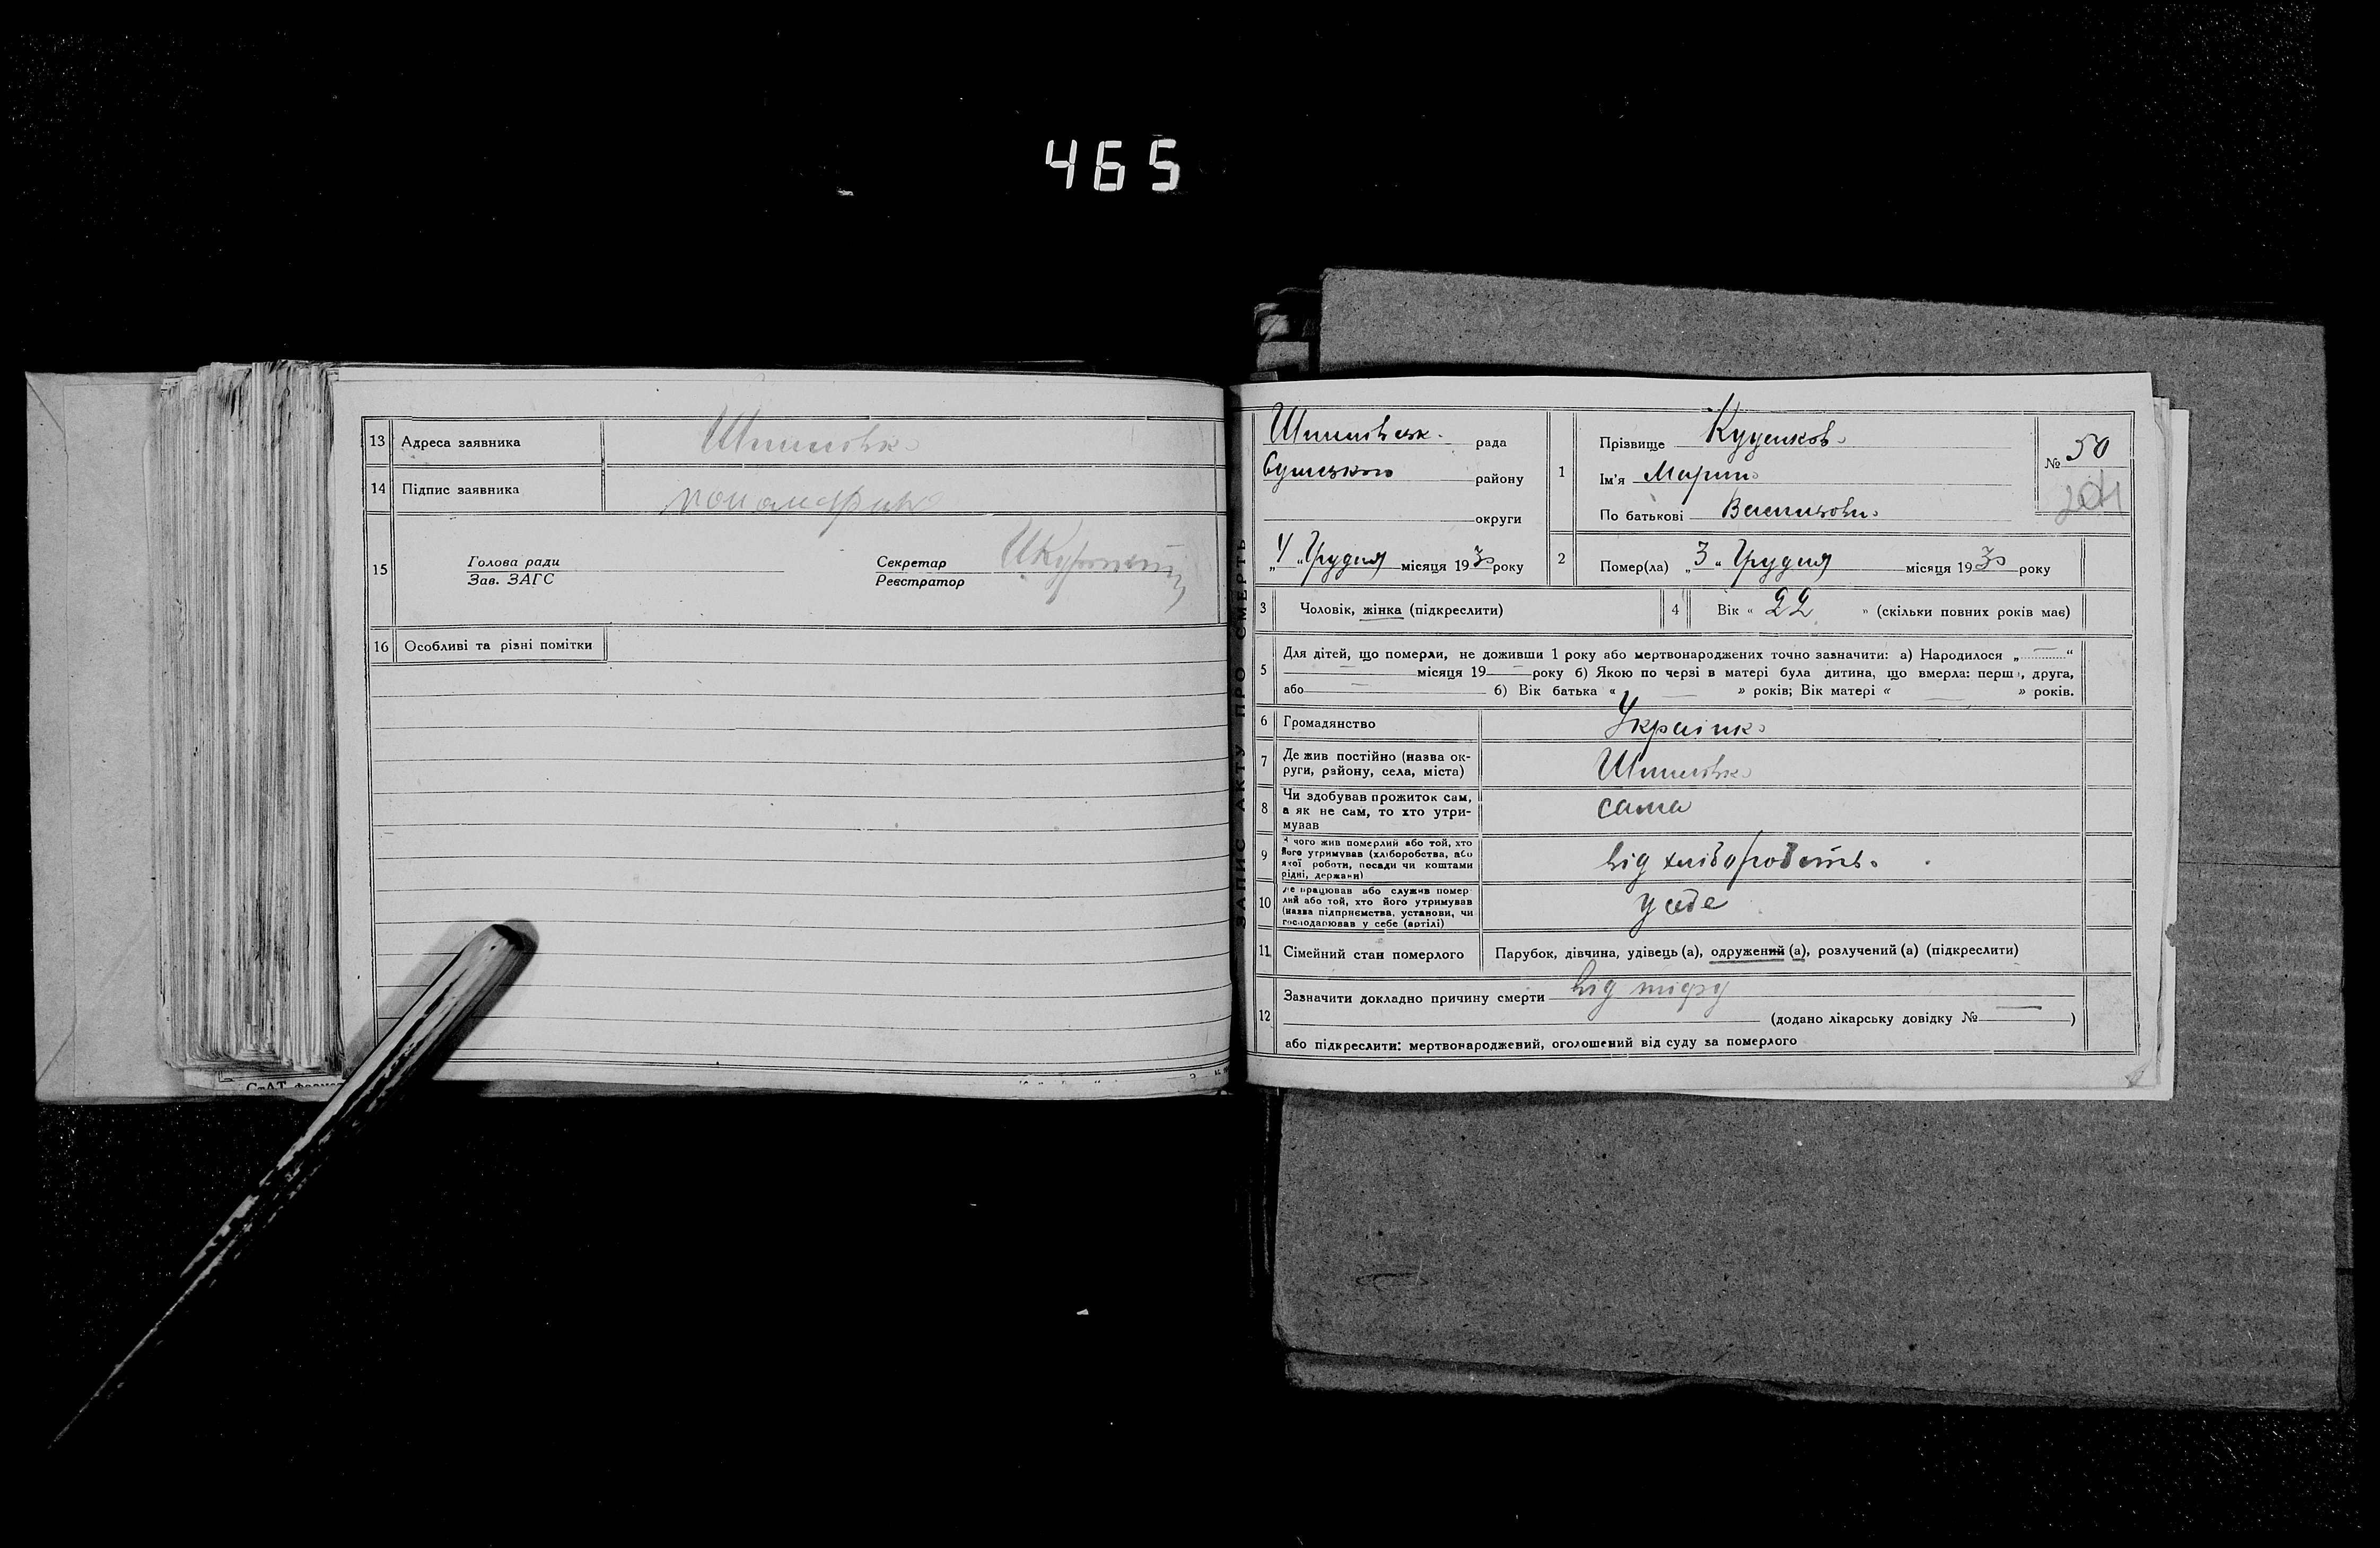 465
13 Адреса заявника
14 Підпис заявника
15 Голова ради
Зав. ЗАГС
Секретар
Реєстратор
16 Особливі та різні помітки
ЗАПИС АКТУ ПРО СМЕРТЬ
рада
району
округи
4 „ Грудня місяця 1930 року
1 Прізвище
Ім'я Марина
По батькові
№ 50
204
2 Помер(ла) „ 3 “ Грудня місяця 1930 року
3 Чоловік, жінка (підкреслити)
4 Вік « 22 » (скільки повних років має)
5 Для дітей, що померли, не доживши 1 року або мертвонароджених точно зазначити: а) Народилося „ — “
— місяця 19 — року б) Якою по черзі в матері була дитина, що вмерла: перша, друга,
або — б) Вік батька « — » років; Вік матері « — » років.
6 Громадянство Українка
7 Де жив постійно (назва ок-
руги, району, села, міста)
8 Чи здобував прожиток сам,
а як не сам, то хто утри-
мував
сама
9 З чого жив померлий або той, хто
його утримував (хліборобства, або
якої роботи, посади чи коштами
рідні, держави)
від хліборобства
10 Де працював або служив помер
лий або той, хто його утримував
(назва підприємства, установи, чи
господарював у себе (артілі)
у себе
11 Сімейний стан померлого Парубок, дівчина, удівець (а), одружений (а), розлучений (а) (підкреслити)
12 Зазначити докладно причину смерти від тифу
(додано лікарську довідку № — )
або підкреслити: мертвонароджений, оголошений від суду за померлого